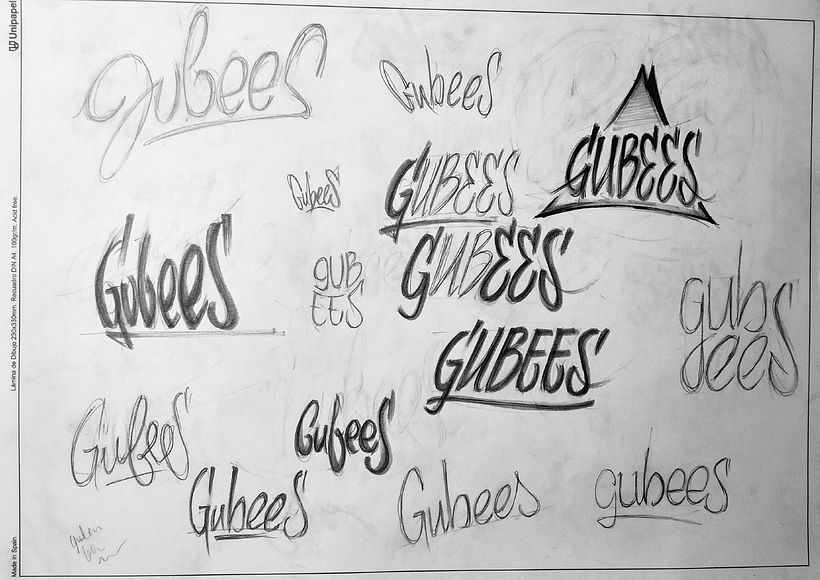 Unipapel
Lámina de Dibujo 230x330mm. Recuadro DIN A4. 100gr/m. Acid free.
Made in Spain
gubees
Gubees
GUBEES
Gubees
GUBEES
Gubees
gUB
EES
GUBEES
gubs
ees
GUBEES
Gubees
Gubees
Gubees
Gubees
gubees